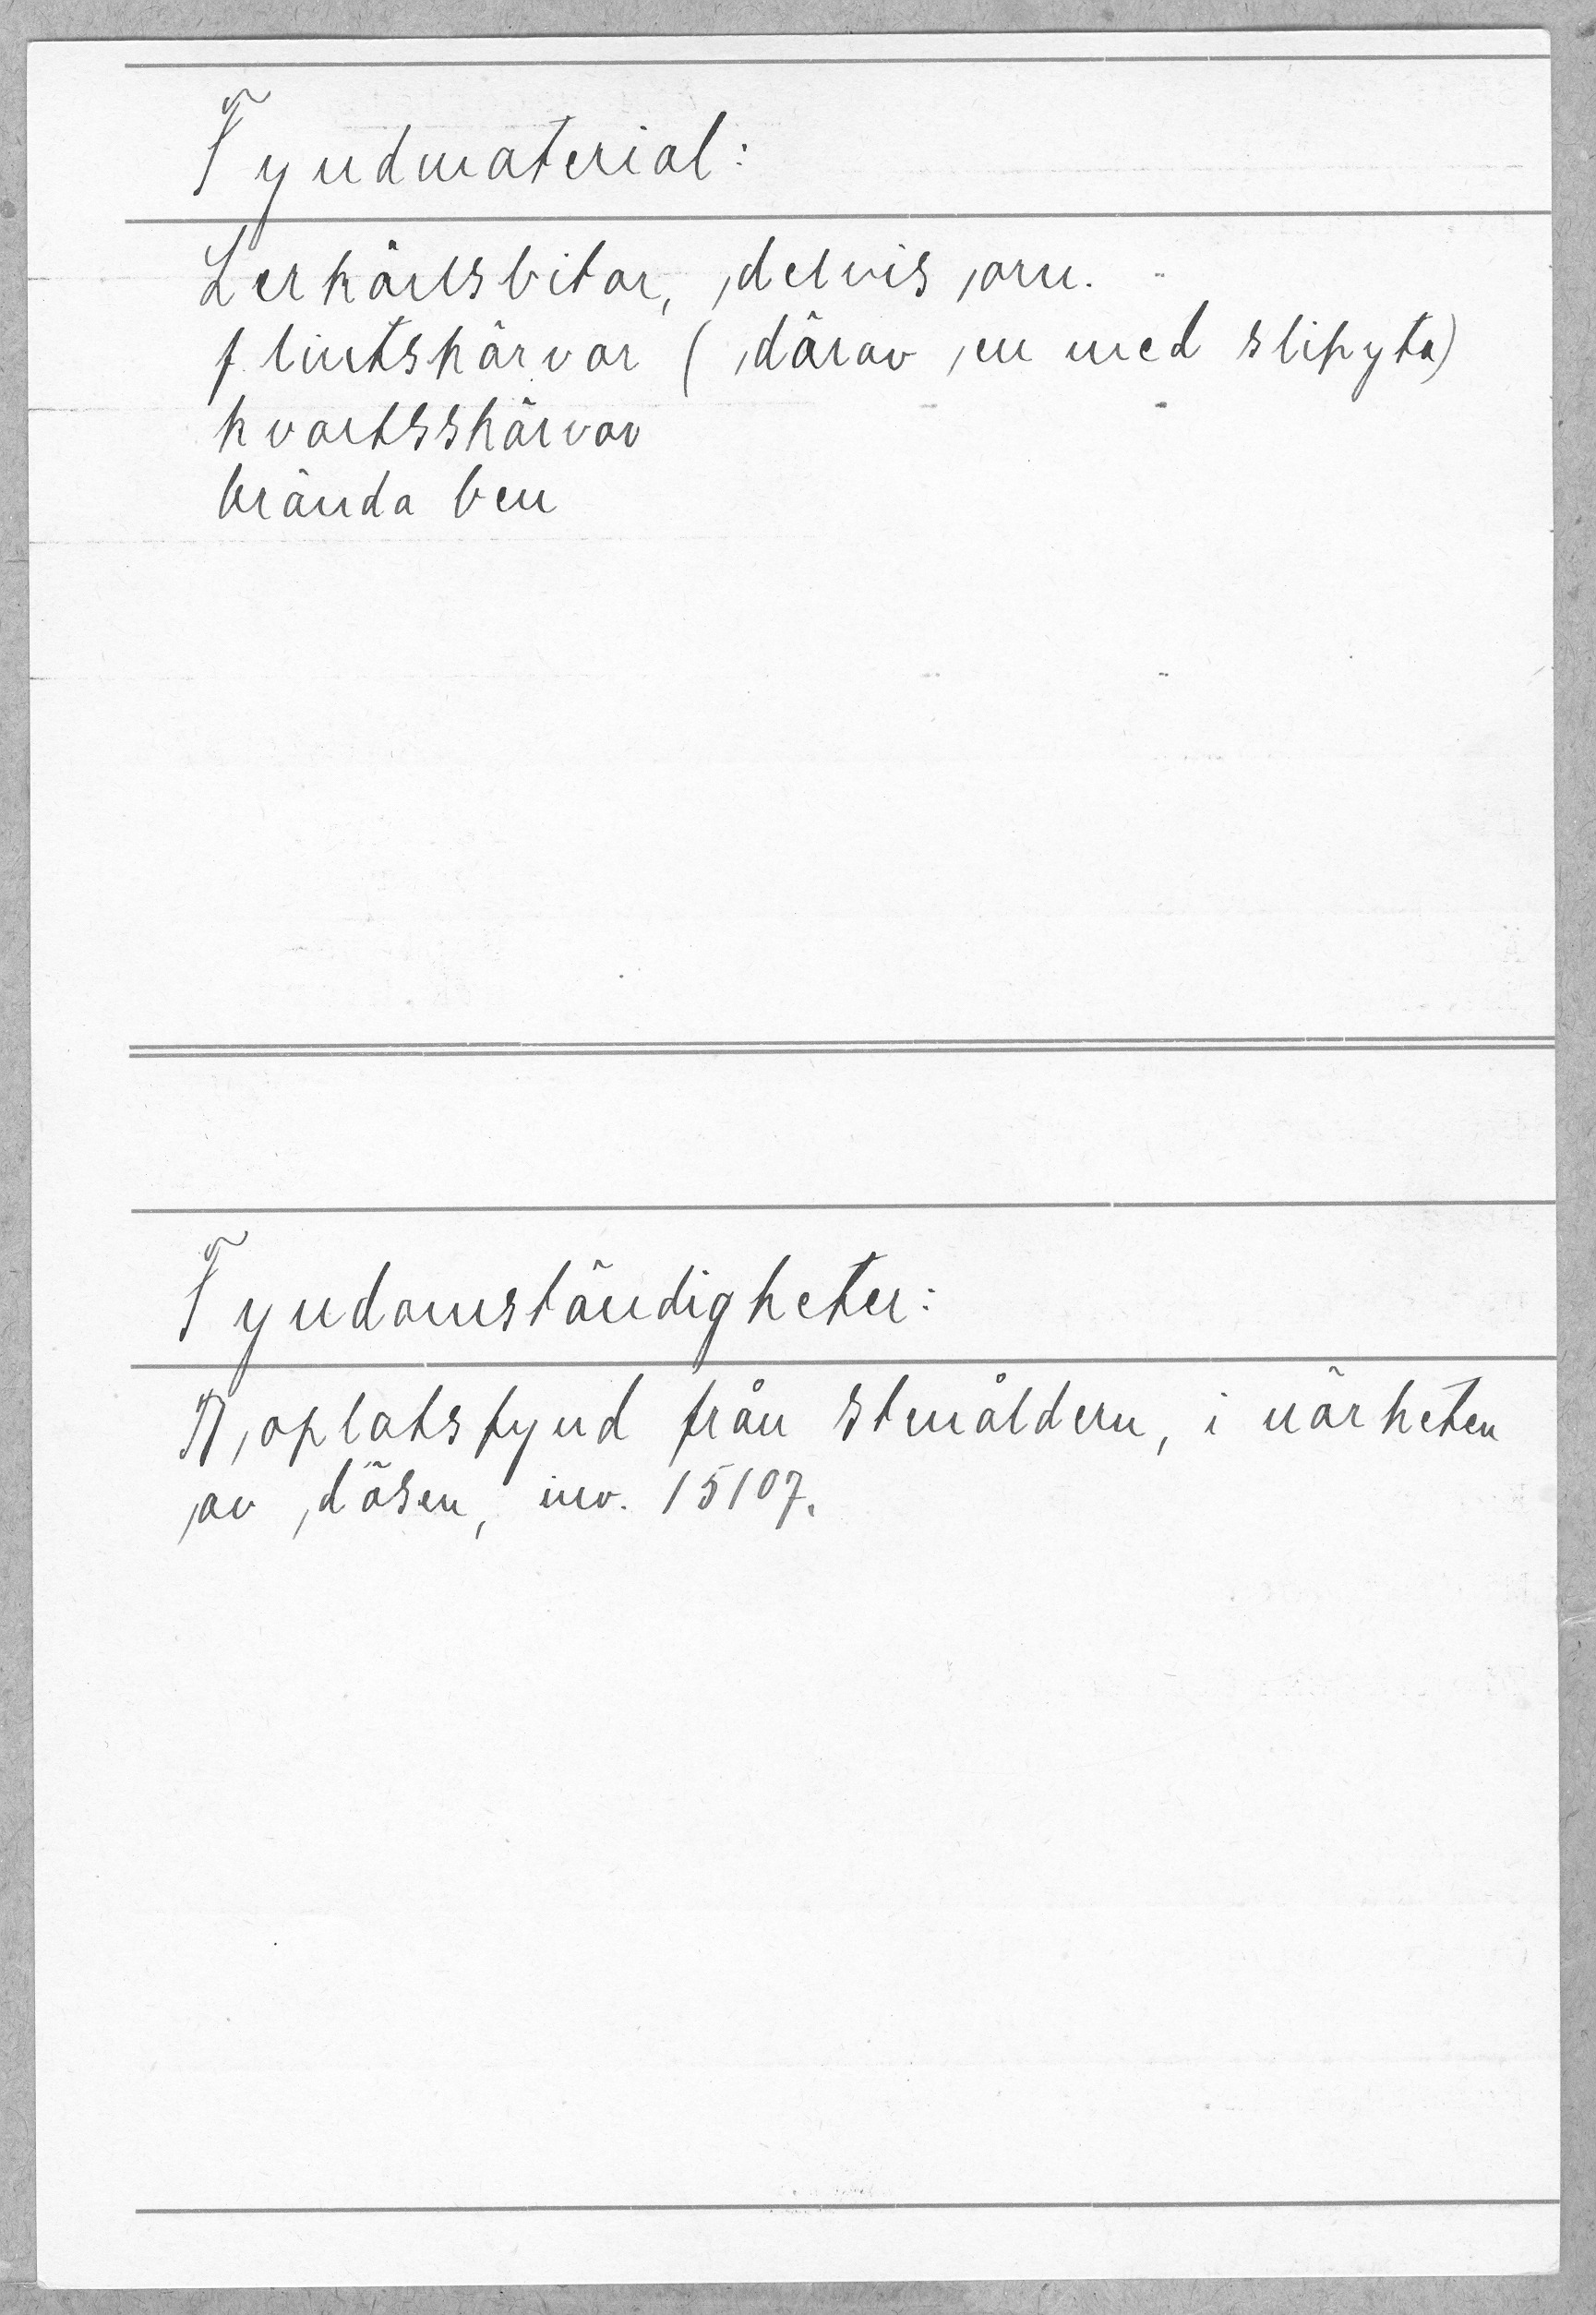 Fyndmaterial:
Lerkärlsbitar, delvis orn.
flintskärvor (därav en med slipyta)
kvartsskärvor
brända ben
Fyndomständigheter:
Boplatsfynd från stenåldern, i närheten
av dösen, inv. 15107.